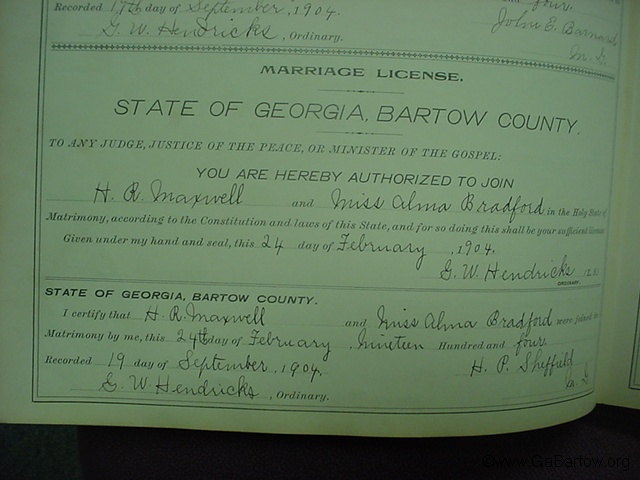 Recorded 17th day of September, 1904.
four.
G. W. Hendricks, Ordinary.
John E. Barnard
M. G.
MARRIAGE LICENSE.
STATE OF GEORGIA, BARTOW COUNTY.
TO ANY JUDGE, JUSTICE OF THE PEACE, OR MINISTER OF THE GOSPEL:
YOU ARE HEREBY AUTHORIZED TO JOIN
H. R. Maxwell and Miss Alma Bradford in the Holy State of
Matrimony, according to the Constitution and laws of this State, and for so doing this shall be your sufficient License.
Given under my hand and seal, this 24 day of February, 1904.
G. W. Hendricks [L.S.]
ORDINARY.
STATE OF GEORGIA, BARTOW COUNTY.
I certify that H. R. Maxwell and Miss Alma Bradford were joined in
Matrimony by me, this 24th day of February, Nineteen Hundred and four.
Recorded 19 day of September, 1904. H. P. Sheffield
G. W. Hendricks, Ordinary. M. G.
©www.GaBartow.org